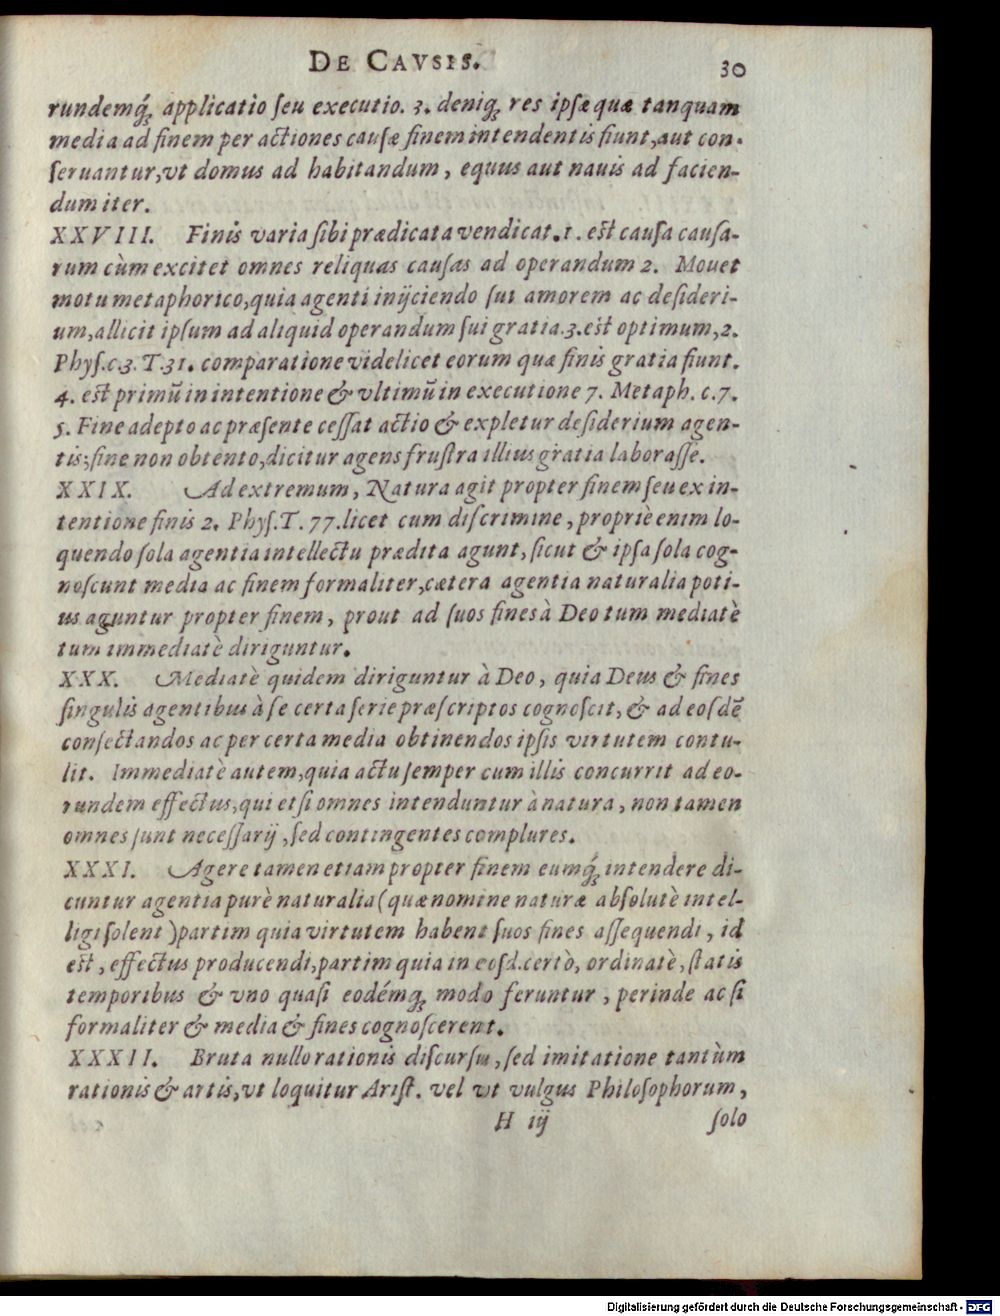 DE CAVSIS. 30
rundemq́; applicatio ſeu executio. 3. deniq; res ipſæ quæ tanquam
media ad finem per actiones cauſæ finem intendentis fiunt, aut con-
ſeruantur, vt domus ad habitandum, equus aut nauis ad facien-
dum iter.
XXVIII. Finis varia ſibi prædicata vendicat. 1. eſt cauſa cauſa-
rum cùm excitet omnes reliquas cauſas ad operandum 2. Mouet
motu metaphorico, quia agenti inijciendo ſui amorem ac deſideri-
um, allicit ipſum ad aliquid operandum ſui gratia. 3. eſt optimum, 2.
Phyſ. c. 3. T. 31. comparatione videlicet eorum quæ finis gratia fiunt.
4. eſt primũ in intentione & vltimũ in executione 7. Metaph. c. 7.
5. Fine adepto ac præſente ceſſat actio & expletur deſiderium agen-
tis; fine non obtento, dicitur agens fruſtra illius gratia laboraſſe.
XXIX. Ad extremum, Natura agit propter finem ſeu ex in-
tentione finis 2. Phyſ. T. 77. licet cum diſcrimine, propriè enim lo-
quendo ſola agentia intellectu prædita agunt, ſicut & ipſa ſola cog-
noſcunt media ac finem formaliter, cætera agentia naturalia poti-
us aguntur propter finem, prout ad ſuos fines à Deo tum mediatè
tum immediatè diriguntur.
XXX. Mediatè quidem diriguntur à Deo, quia Deus & fines
ſingulis agentibus à ſe certa ſerie præſcriptos cognoſcit, & ad eoſdẽ
conſectandos ac per certa media obtinendos ipſis virtutem contu-
lit. Immediatè autem, quia actu ſemper cum illis concurrit ad eo-
rundem effectus, qui etſi omnes intenduntur à natura, non tamen
omnes ſunt neceſſarij, ſed contingentes complures.
XXXI. Agere tamen etiam propter finem eumq́; intendere di-
cuntur agentia purè naturalia (quæ nomine naturæ abſolutè intel-
ligi ſolent) partim quia virtutem habent ſuos fines aſſequendi, id
eſt, effectus producendi, partim quia in eoſd. certò, ordinatè, ſtatis
temporibus & vno quaſi eodémq; modo feruntur, perinde ac ſi
formaliter & media & fines cognoſcerent.
XXXII. Bruta nullo rationis diſcurſu, ſed imitatione tantùm
rationis & artis, vt loquitur Ariſt. vel vt vulgus Philoſophorum,
H iij ſolo
Digitalisierung gefördert durch die Deutsche Forschungsgemeinschaft - DFG